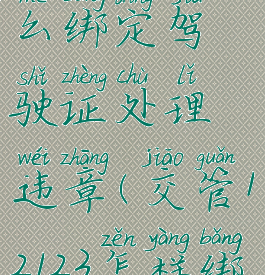 么绑定驾
shǐ zhèng chù lǐ
驶证处理
wéi zhāng jiāo guǎn
违章(交管1
zěn yàng bǎng
2123怎样绑